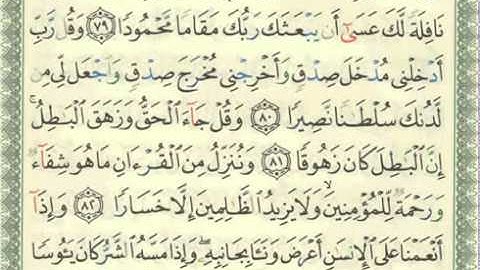 نَافِلَةً لَّكَ عَسَىٰٓ أَن يَبْعَثَكَ رَبُّكَ مَقَامًا مَّحْمُودًا ٧٩ وَقُل رَّبِّ
أَدْخِلْنِى مُدْخَلَ صِدْقٍ وَأَخْرِجْنِى مُخْرَجَ صِدْقٍ وَٱجْعَل لِّى مِن
لَّدُنكَ سُلْطَٰنًا نَّصِيرًا ٨٠ وَقُلْ جَآءَ ٱلْحَقُّ وَزَهَقَ ٱلْبَٰطِلُ ۚ
إِنَّ ٱلْبَٰطِلَ كَانَ زَهُوقًا ٨١ وَنُنَزِّلُ مِنَ ٱلْقُرْءَانِ مَا هُوَ شِفَآءٌ
وَرَحْمَةٌ لِّلْمُؤْمِنِينَ ۙ وَلَا يَزِيدُ ٱلظَّٰلِمِينَ إِلَّا خَسَارًا ٨٢ وَإِذَآ
أَنْعَمْنَا عَلَى ٱلْإِنسَٰنِ أَعْرَضَ وَنَـَٔا بِجَانِبِهِۦ ۖ وَإِذَا مَسَّهُ ٱلشَّرُّ كَانَ يَـُٔوسًا